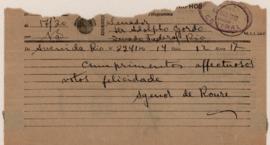 17/20
Senador
Dr Adolpho Gordo
Senado Federal Rio
Avenida Rio 14 12 17
Cumprimentos affectuosos
votos felicidade
Agenor de Roure